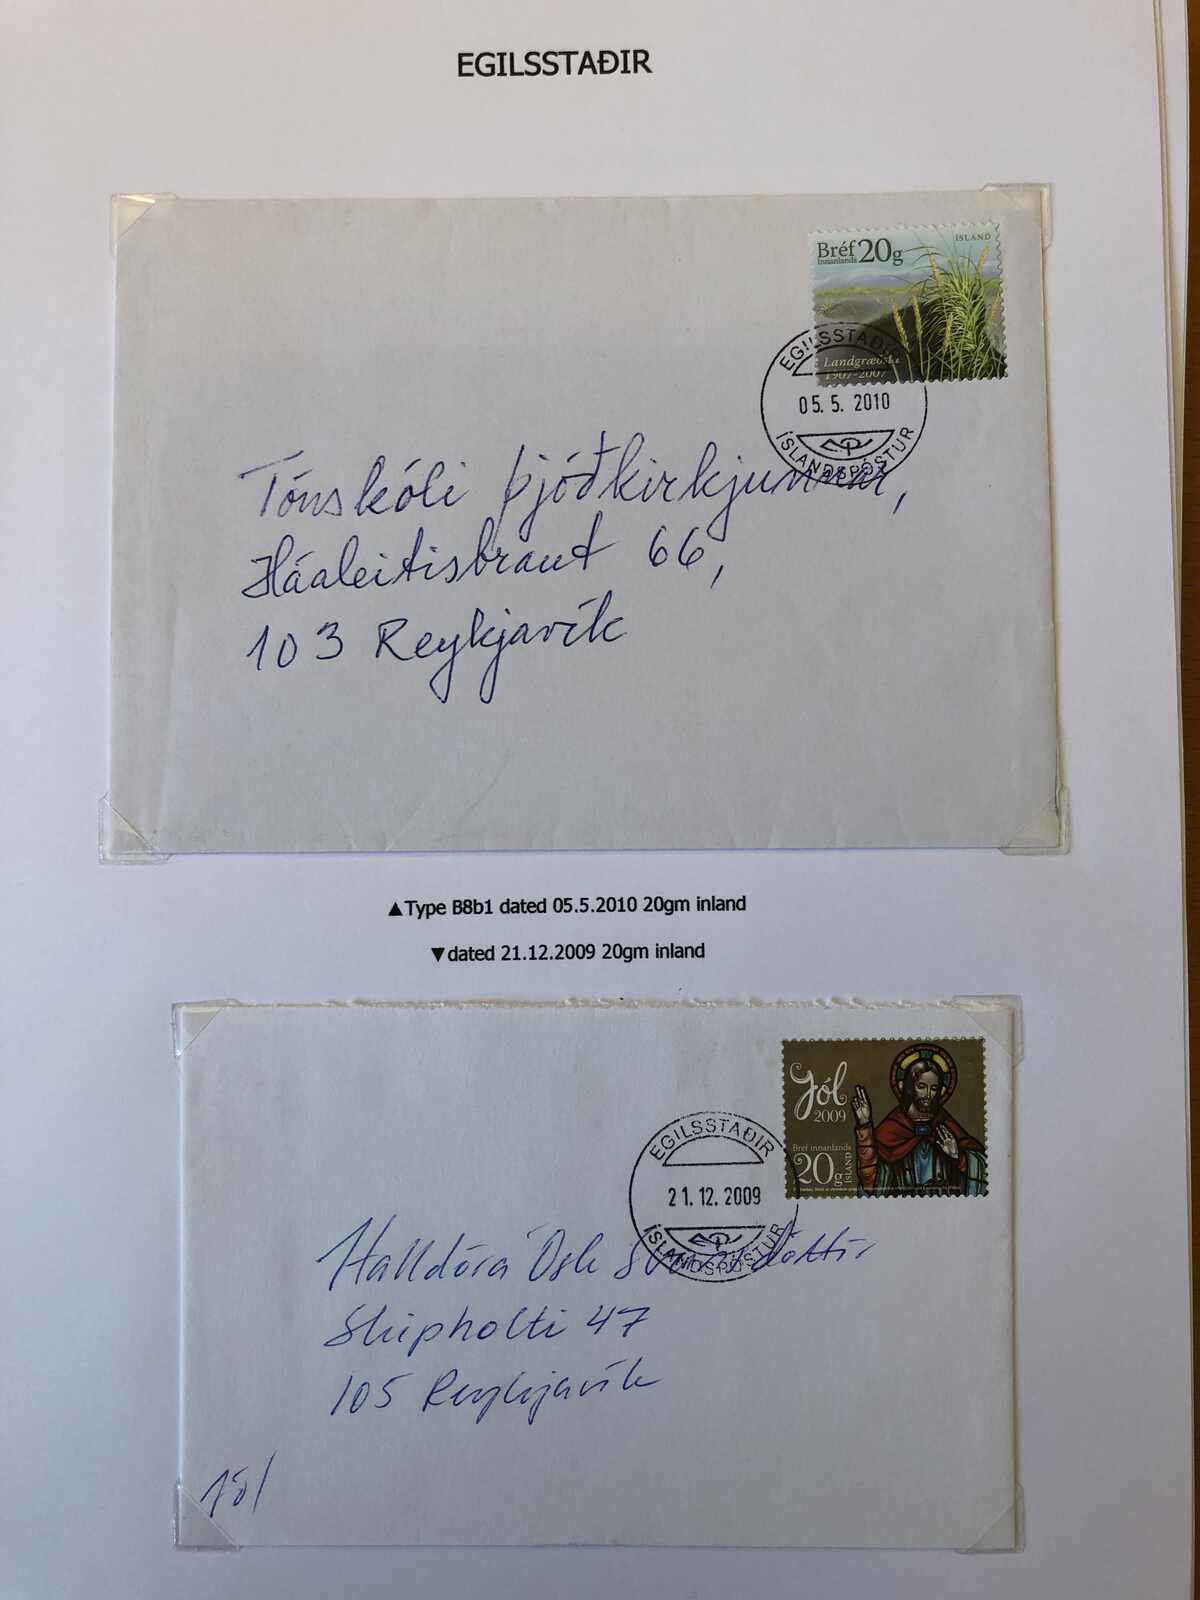 EGILSSTAÐIR
Bréf 20g
Innanlands
ÍSLAND
Landgræðsla
1907-2007
EGILSSTAÐIR
05. 5. 2010
ÍSLANDSPÓSTUR
Tónskóli þjóðkirkjunnar,
Háaleitisbraut 66,
103 Reykjavík
▲Type B8b1 dated 05.5.2010 20gm inland
▼dated 21.12.2009 20gm inland
Jól
2009
Bréf innanlands
20g
ÍSLAND
EGILSSTAÐIR
21. 12. 2009
ÍSLANDSPÓSTUR
Halldóra Ósk
Skipholti 47
105 Reykjavík
Jól